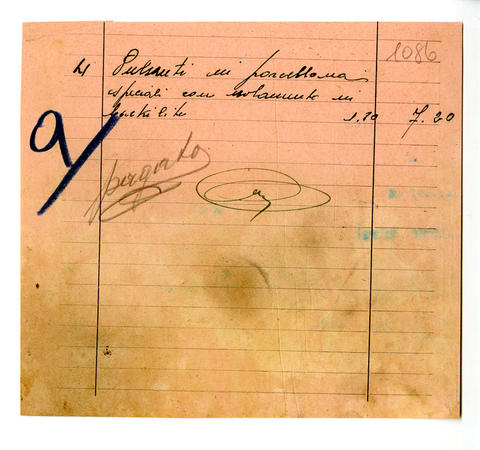 1086
4 Pulsanti in porcellana
speciali con isolamento in
1.80 7.20
a/